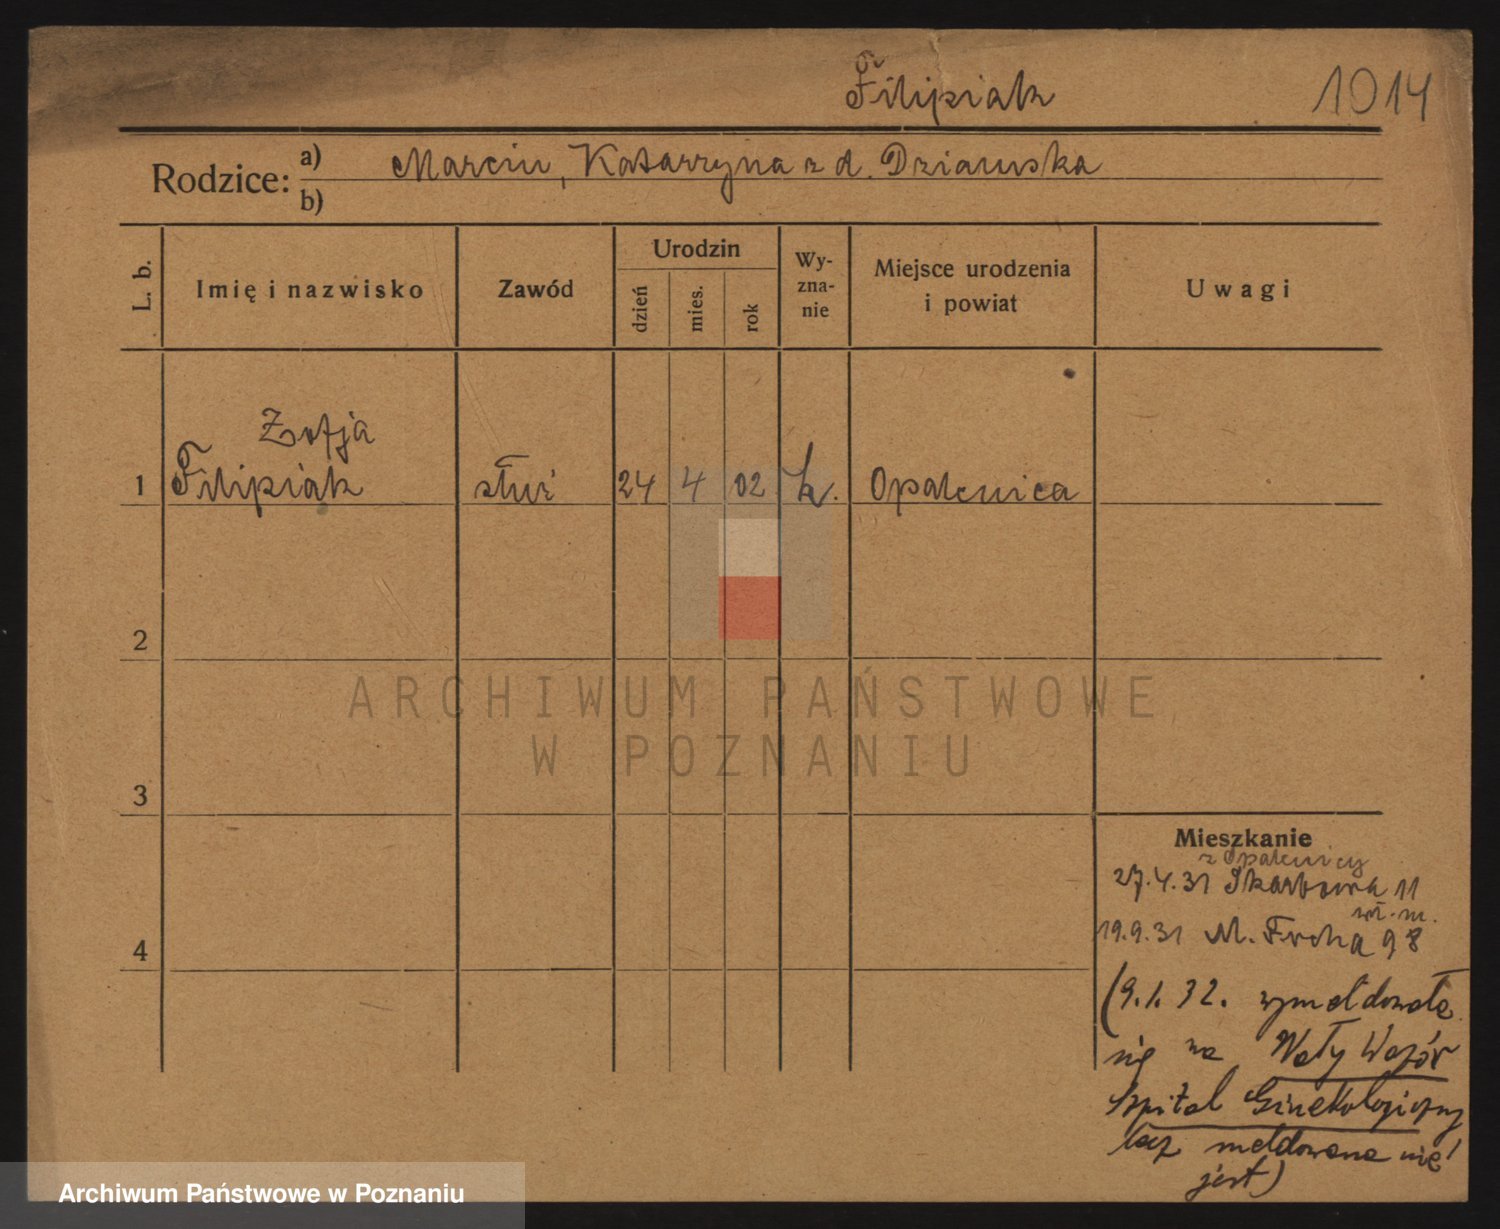 Filipiak 1014
Rodzice: a) Marcin, Katarzyna z d.
b)
L. b. Imię i nazwisko Zawód Urodzin dzień mies. rok Wy-zna-nie Miejsce urodzenia i powiat Uwagi
Zofja
1 Filipiak służ 24 4 02 k. Opalenica
2
3
4
Mieszkanie
z Opalenicy
27.4.31 Skarbowa 11
19.9.31 M. Focha 98
(9.1.32. wymeldowała
się na Wały Wazów
Szpital Ginekologiczny
lecz meldowana nie
jest)
ARCHIWUM PAŃSTWOWE
W POZNANIU
Archiwum Państwowe w Poznaniu